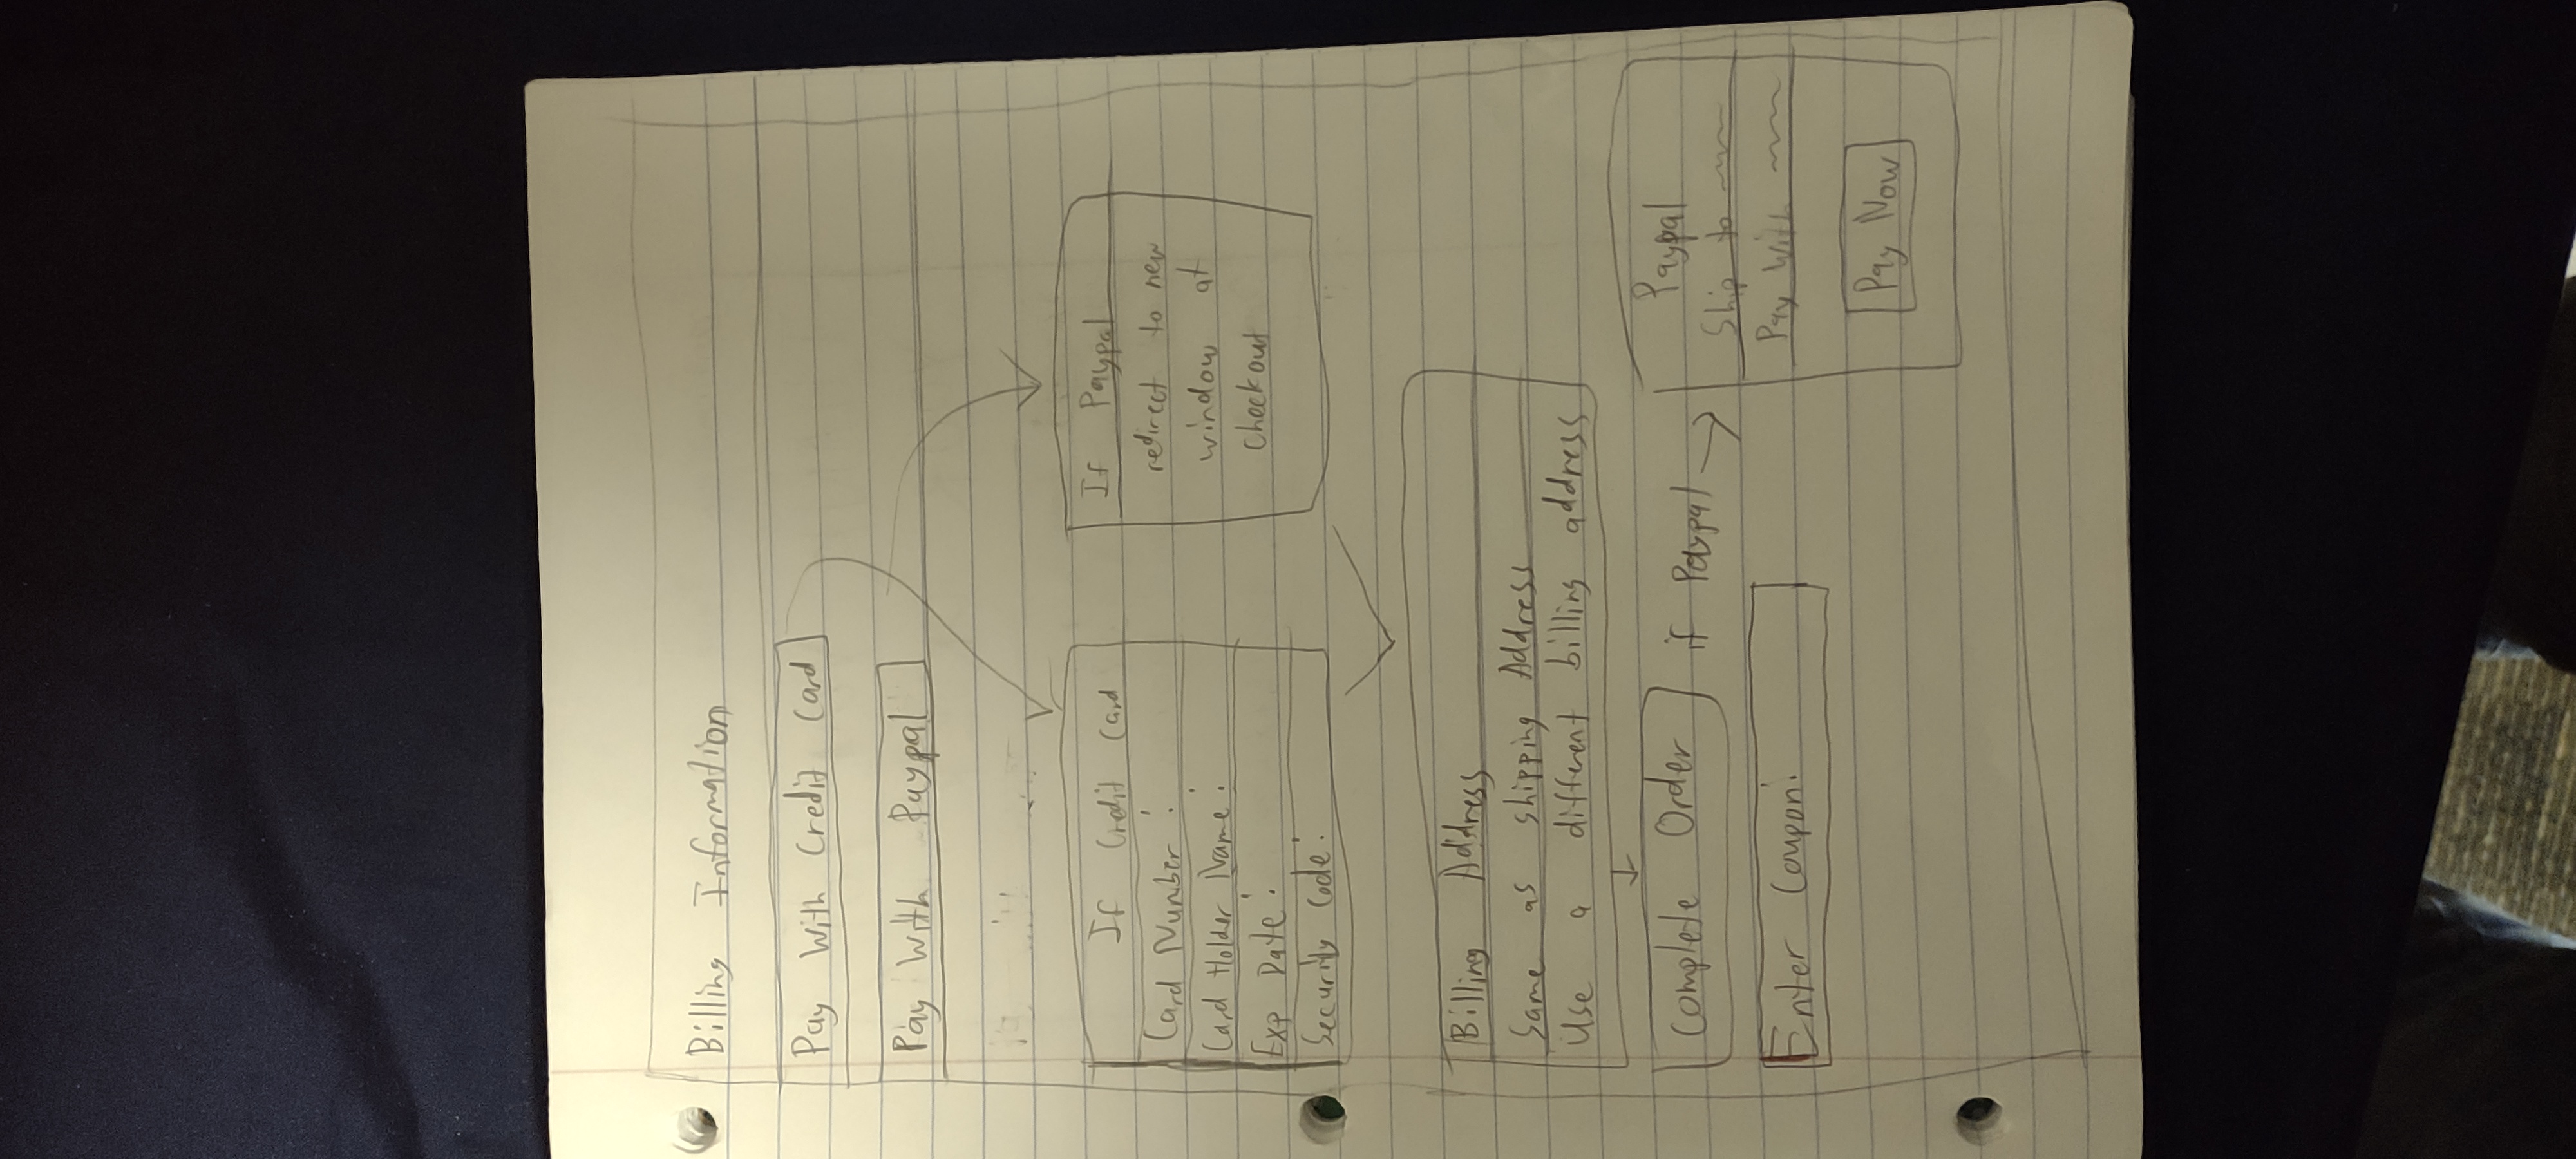 Billing Information
Pay With Credit Card
Pay With Paypal
If Credit Card
Card Number:
Card Holder Name:
Exp Date:
Security Code:
If Paypal
redirect to new
window at
checkout
Billing Address
Same as shipping Address
Use a different billing address
Complete Order
if Paypal
Enter Coupon:
Paypal
Ship to
Pay With
Pay Now